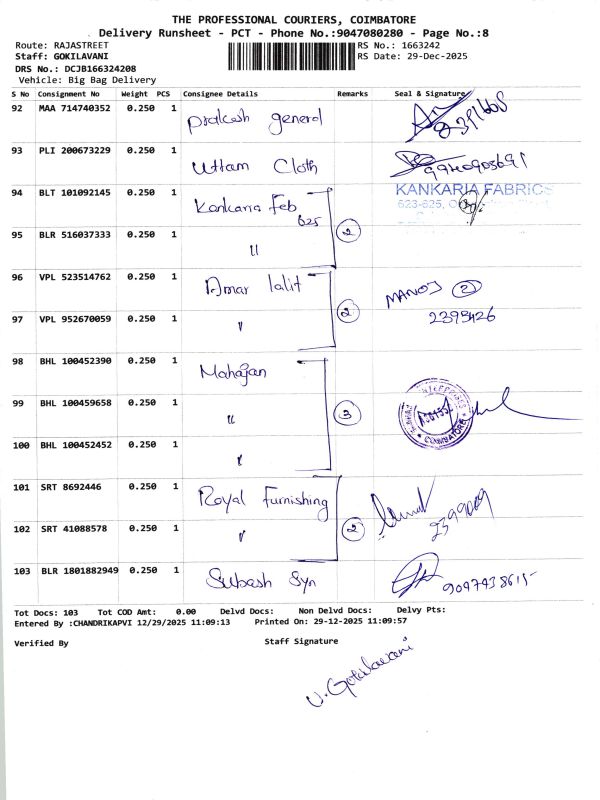 THE PROFESSIONAL COURIERS, COIMBATORE
Delivery Runsheet - PCT - Phone No.:9047080280 - Page No.:8
Route: RAJASTREET
RS No.: 1663242
Staff: GOKILAVANI
RS Date: 29-Dec-2025
DRS No.: DCJB166324208
Vehicle: Big Bag Delivery
S No Consignment No Weight PCS Consignee Details Remarks Seal & Signature
92 MAA 714740352 0.250 1 Prakash general
93 PLI 200673229 0.250 1 Uttam Cloth
94 BLT 101092145 0.250 1 Kankaria Feb 625 KANKARIA FABRICS
623-625,
95 BLR 516037333 0.250 1 " 2
96 VPL 523514762 0.250 1 Amar lalit MANOJ 2
97 VPL 952670059 0.250 1 " 2 2393426
98 BHL 100452390 0.250 1 Mahajan
99 BHL 100459658 0.250 1 " 3 COIMBATORE
100 BHL 100452452 0.250 1 "
101 SRT 8692446 0.250 1 Royal Furnishing
102 SRT 41088578 0.250 1 " 2 2399009
103 BLR 1801882949 0.250 1 Subash Syn 9047438615
Tot Docs: 103 Tot COD Amt: 0.00 Delvd Docs: Non Delvd Docs: Delvy Pts:
Entered By :CHANDRIKAPVI 12/29/2025 11:09:13 Printed On: 29-12-2025 11:09:57
Verified By Staff Signature
V. Gokilavani